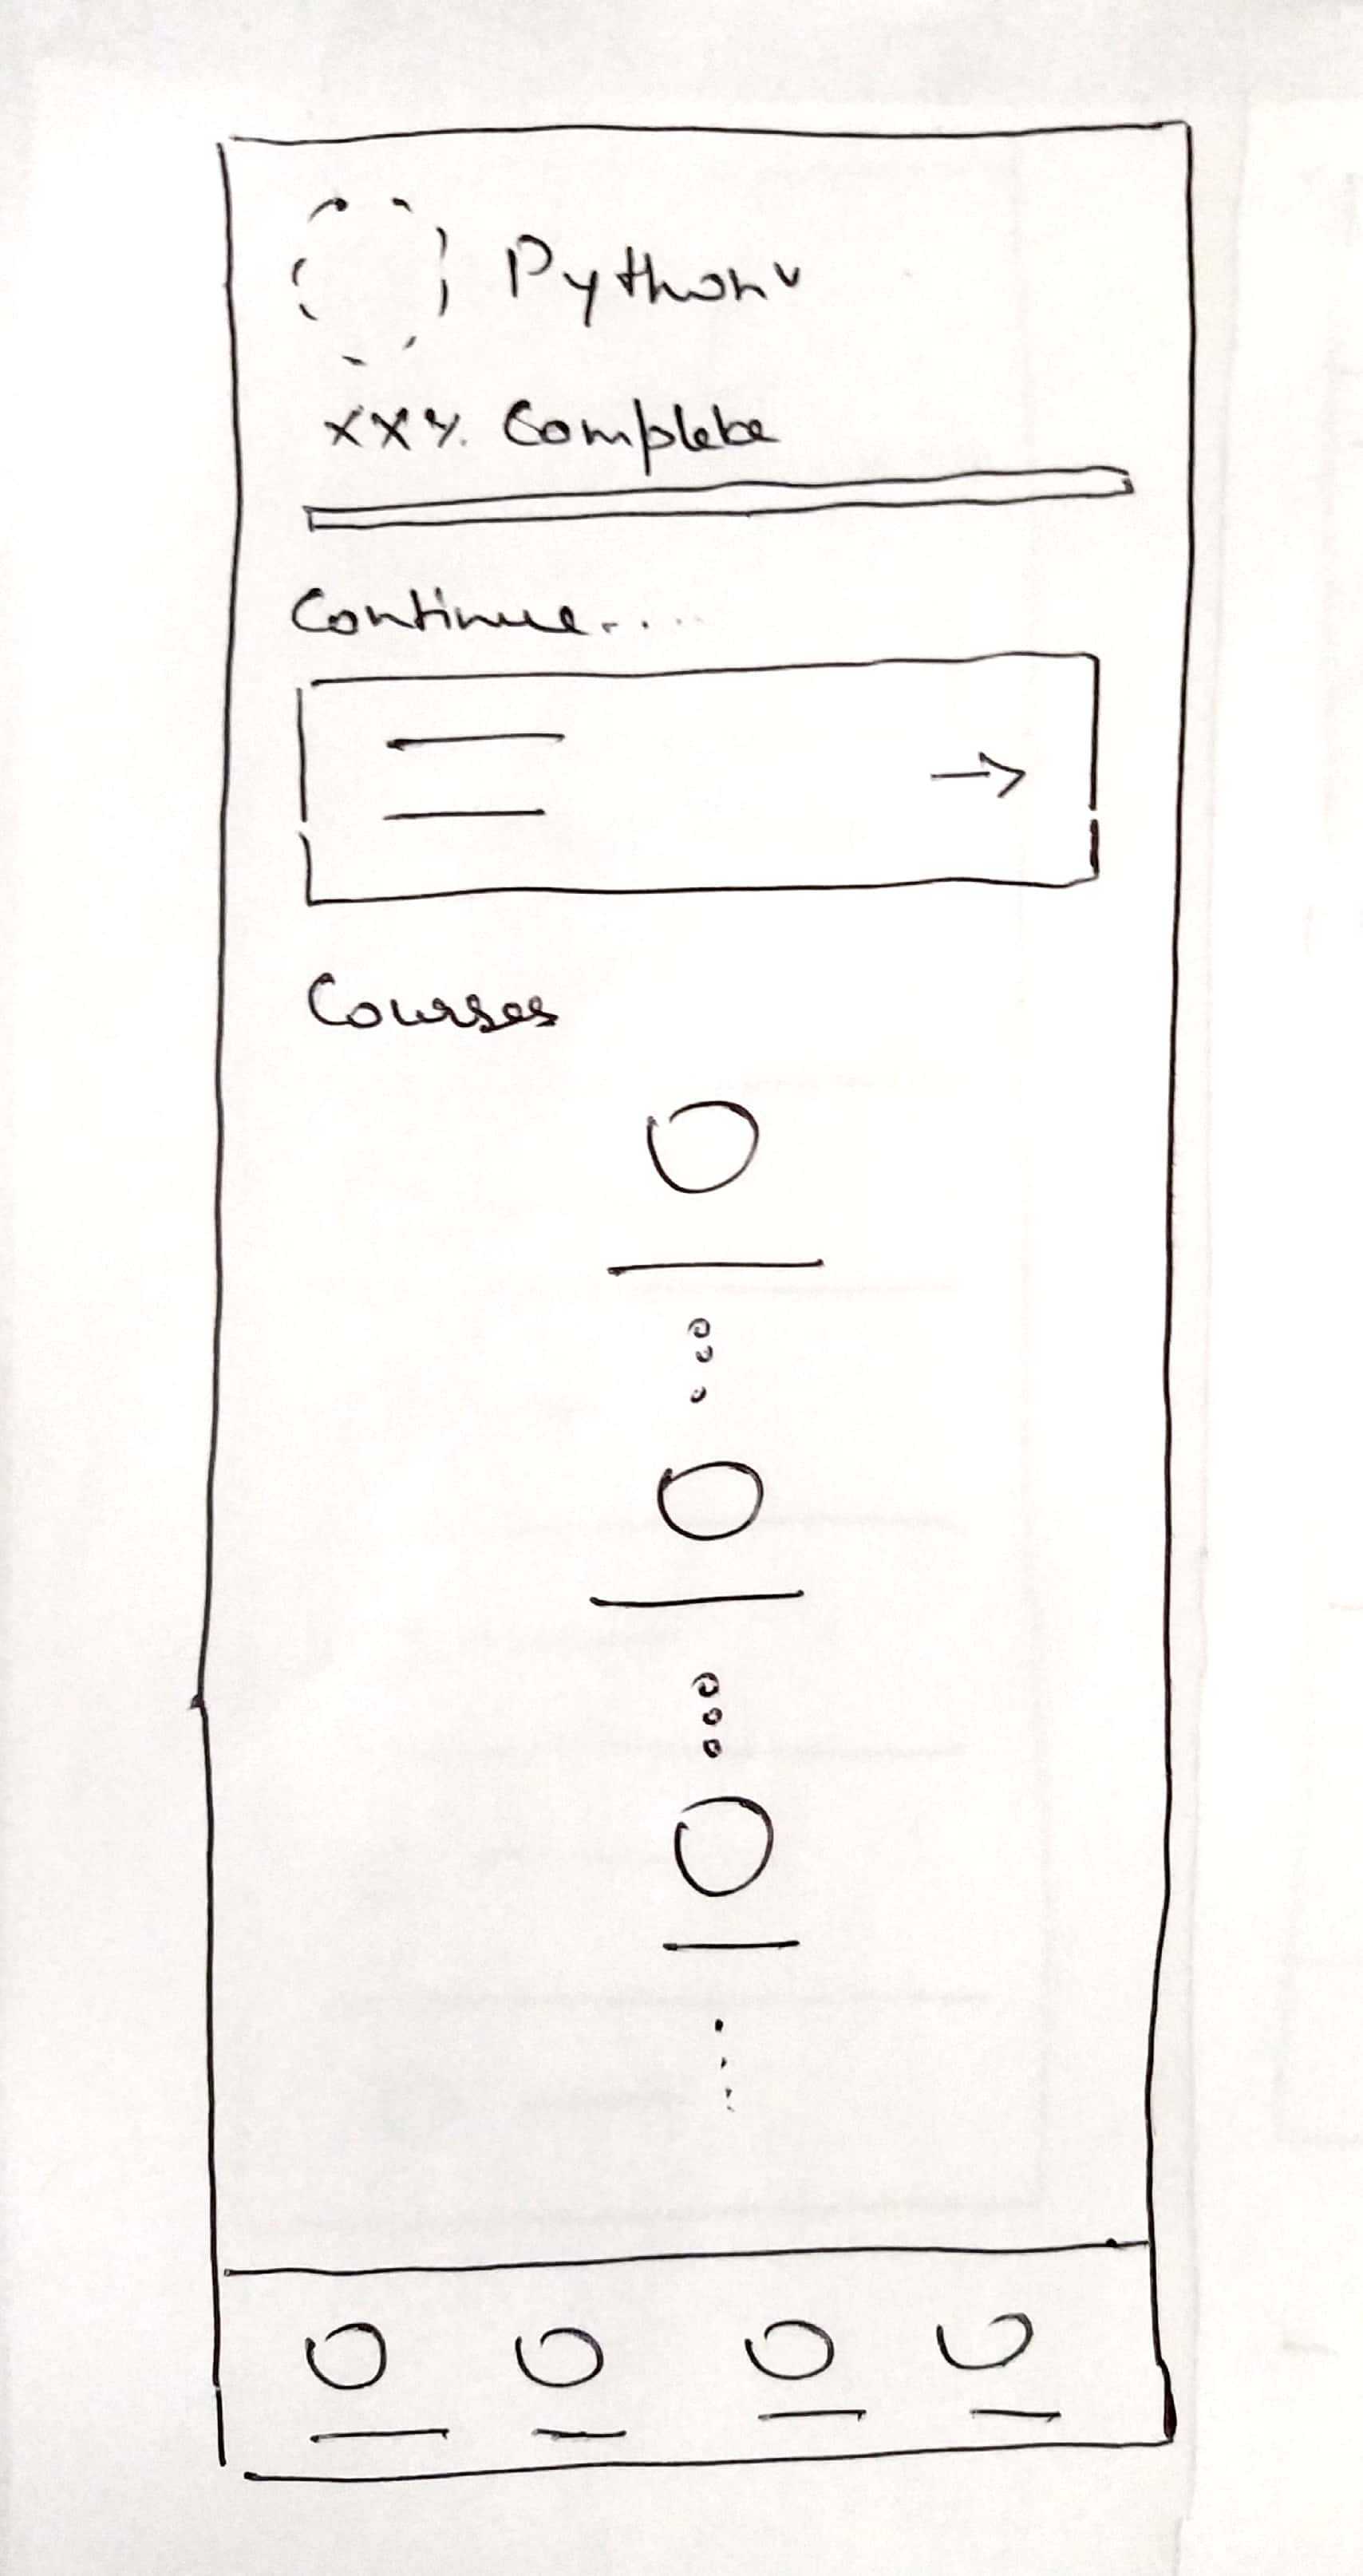 Python
XX% Complete
Continue.....
Courses